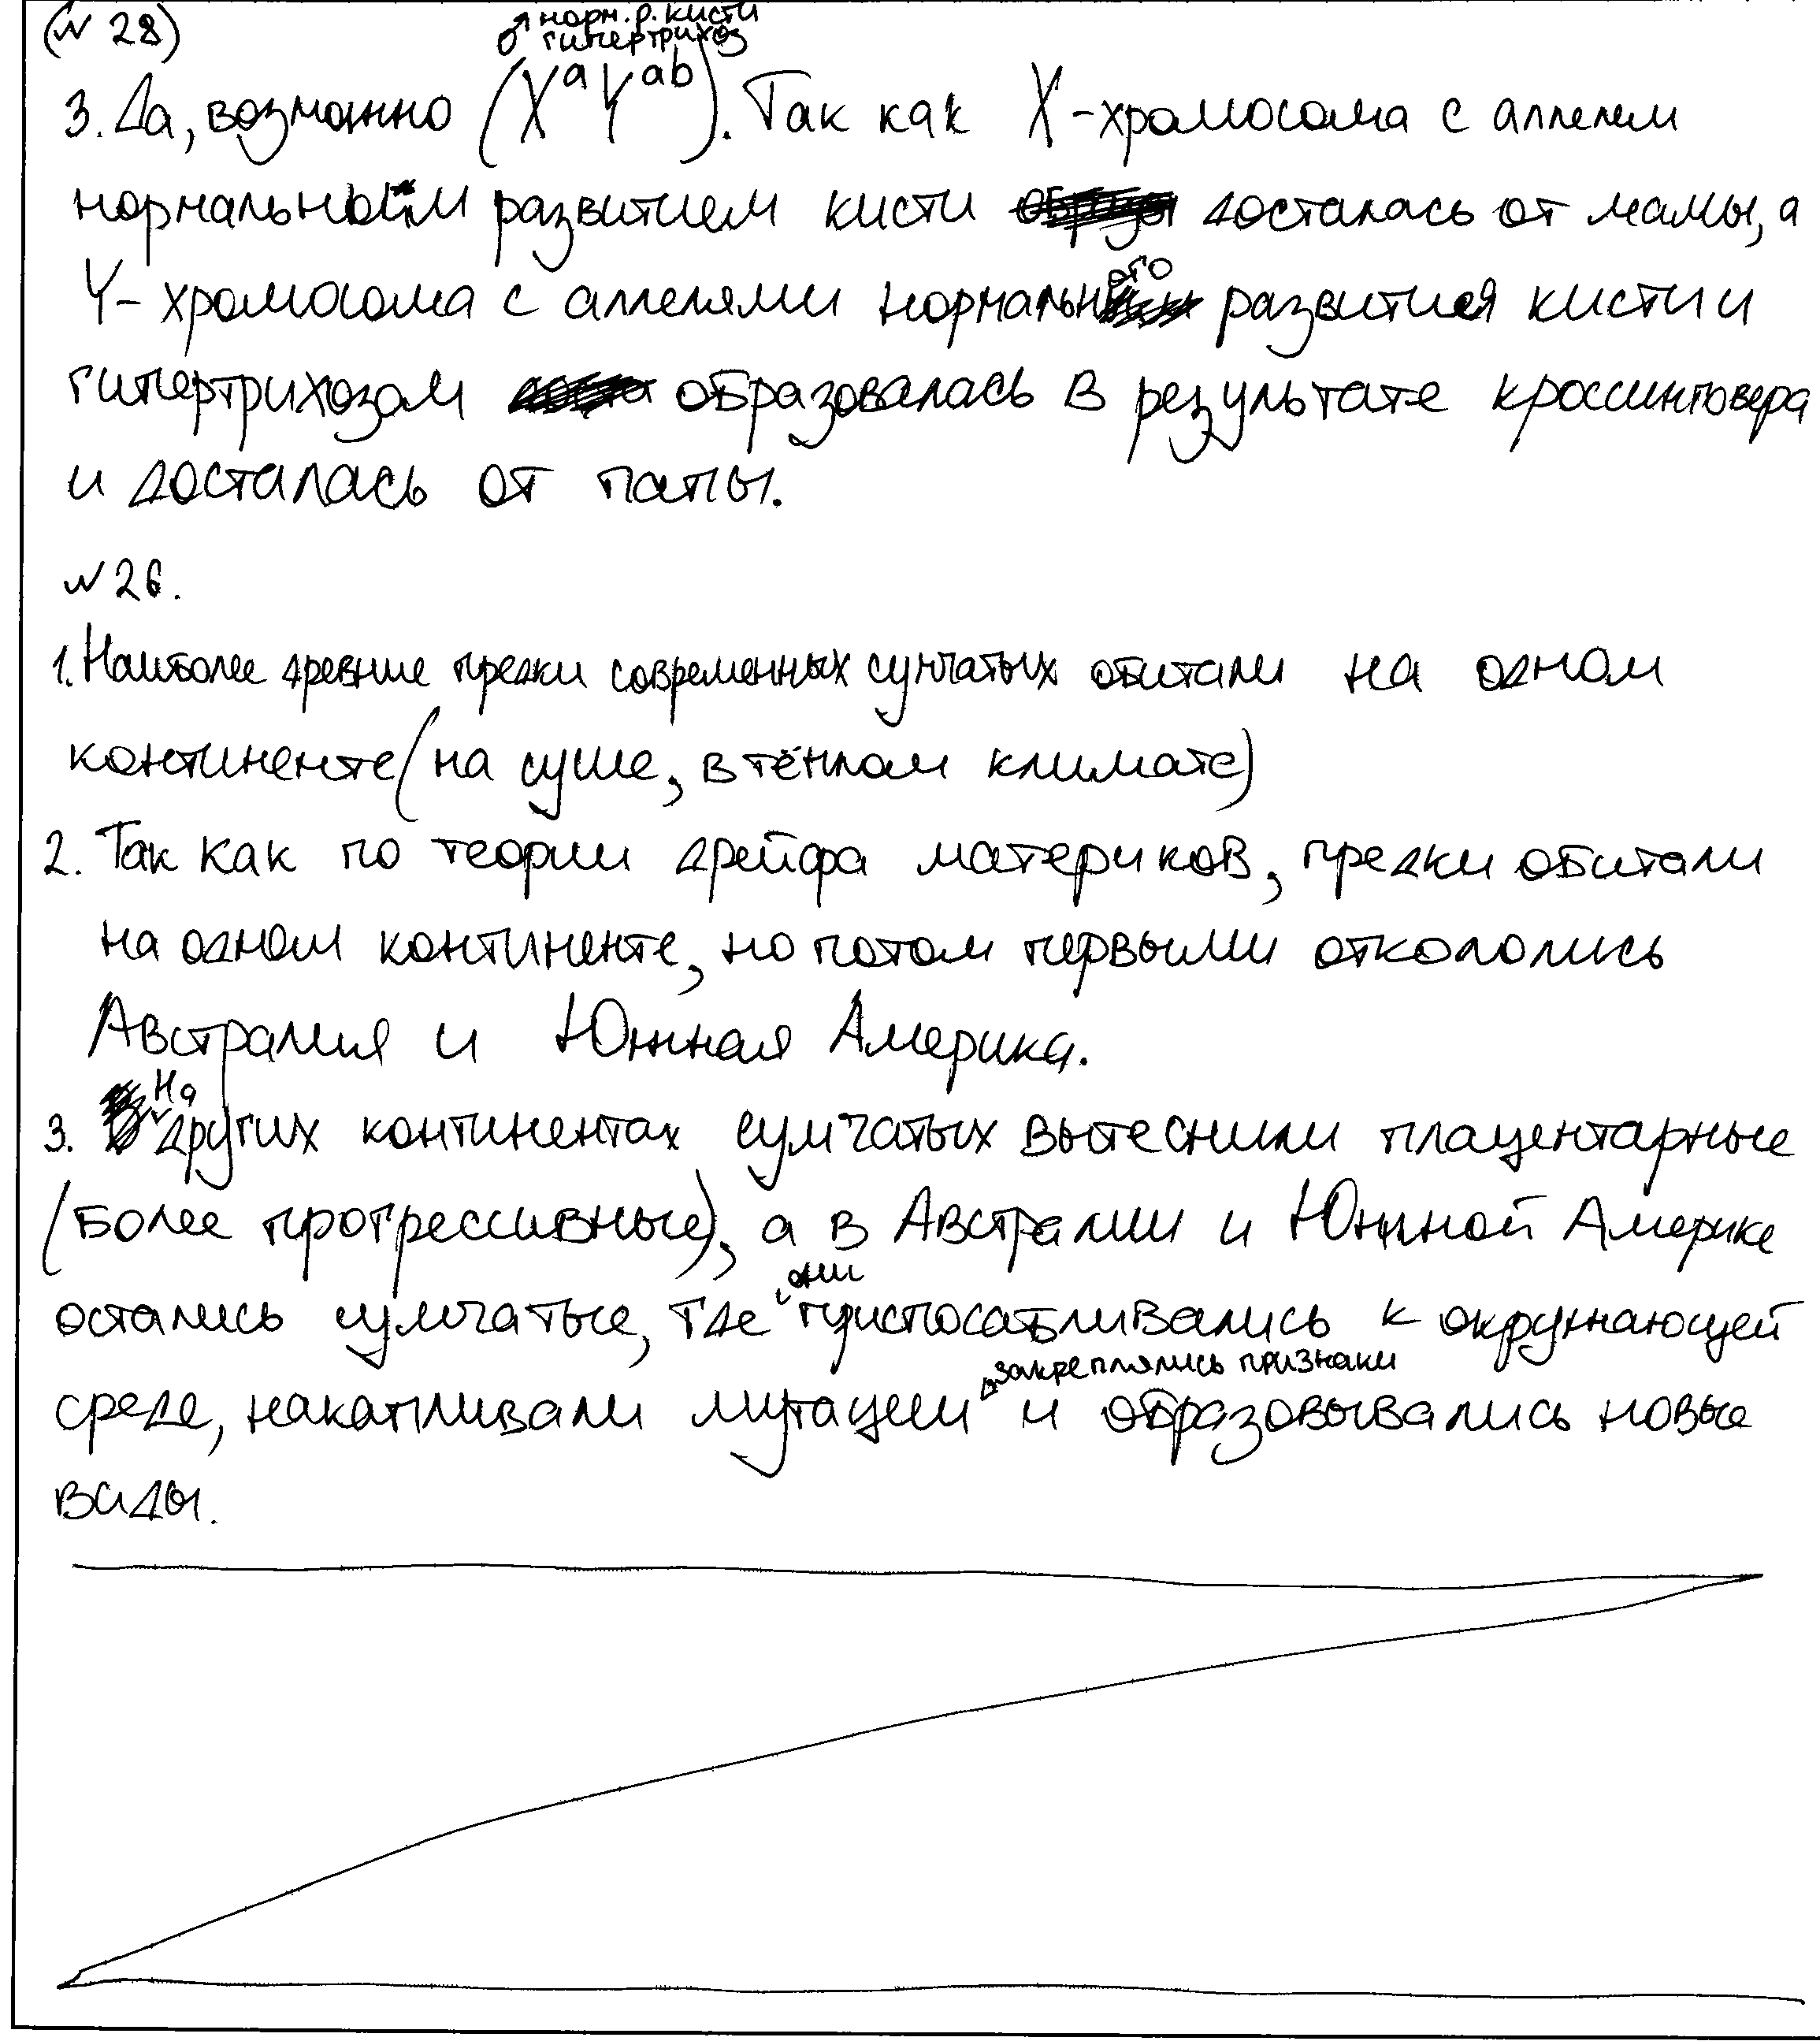 (№ 28)
♂ норм. р. кисти
гипертрихоз
3. Да, возможно (XᵃYᵃᵇ). Так как X-хромосома с аллелем
нормальным развитием кисти досталась от мамы, а
Y-хромосома с аллелями нормального развития кисти и
гипертрихозом образовалась в результате кроссинговера
и досталась от папы.
№ 26.
1. Наиболее древние предки современных сумчатых обитали на одном
континенте (на суше, в тёплом климате)
2. Так как по теории дрейфа материков, предки обитали
на одном континенте, но потом первыми откололись
Австралия и Южная Америка.
3. На других континентах сумчатых вытеснили плацентарные
(более прогрессивные), а в Австралии и Южной Америке
остались сумчатые, где они приспосабливались к окружающей
среде, накапливали мутации, закреплялись признаки и образовывались новые
виды.